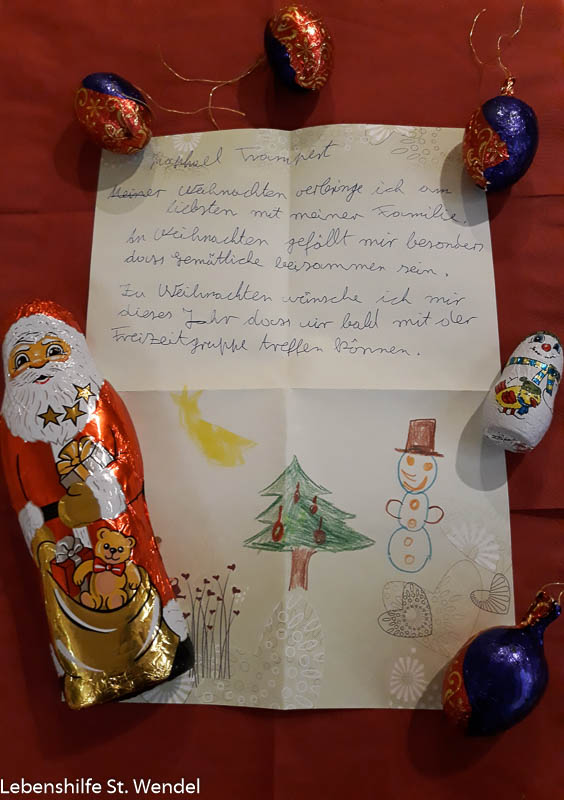 Raphael Trampert
Meiner Wahnachten verbringe ich am
liebsten mit meiner Familie.
An Weihnachten gefällt mir besonders
dass gemütliche beisammen sein.
Zu Weihnachten wünsche ich mir
dieses Jahr dass wir bald mit der
Freizeitgruppe treffen können.
Lebenshilfe St. Wendel